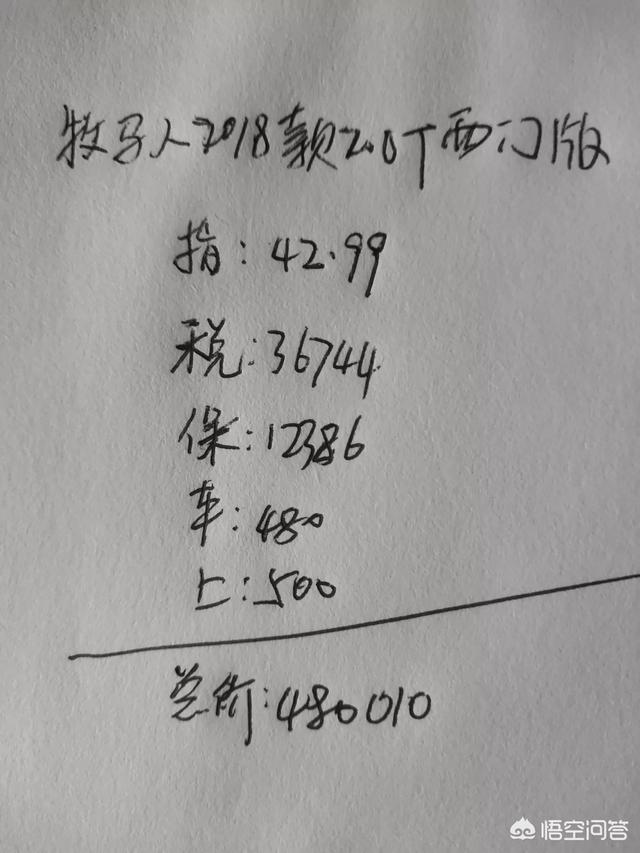 牧马人2018款2.0T四门版
指:42.99
税:36744
保:12386
车:480
上:500
总价:480010
悟空问答